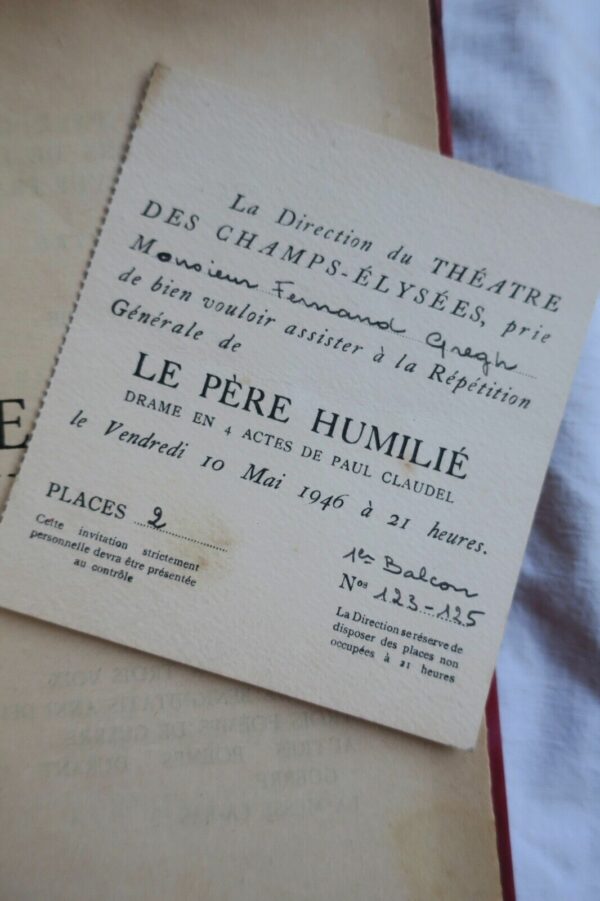 La Direction du THÉATRE
DES CHAMPS-ÉLYSÉES, prie
Monsieur Fernand Gregh
de bien vouloir assister à la Répétition
Générale de
LE PÈRE HUMILIÉ
DRAME EN 4 ACTES DE PAUL CLAUDEL
le Vendredi 10 Mai 1946 à 21 heures.
PLACES 2
Cette invitation strictement
personnelle devra être présentée
au contrôle
1er Balcon
Nos 123-125
La Direction se réserve de
disposer des places non
occupées à 21 heures
E